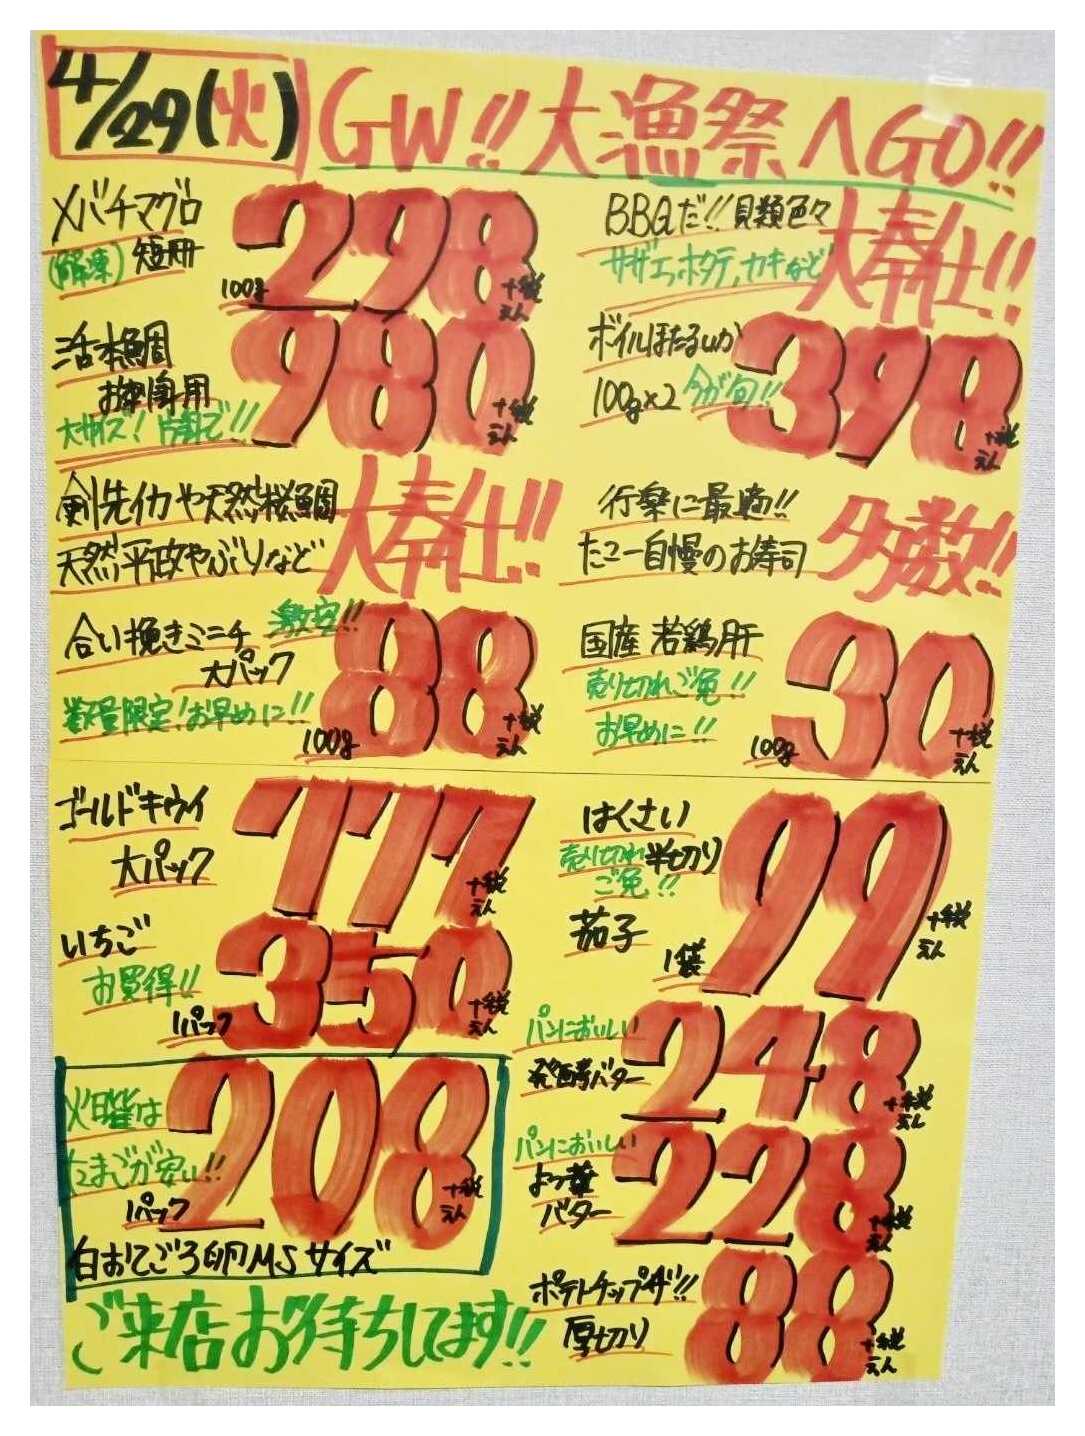 4/29(火) GW!! 大漁祭へGO!!
メバチマグロ
(解凍) 短冊
100g 298 +税 えん
活〆真鯛
お刺身用
大サイズ! 片身で!!
980 +税 えん
剣先イカや天然桜鯛
天然平政やぶりなど
大奉仕!!
合い挽きミンチ 激安!!
大パック
数量限定!お早めに!!
100g 88 +税 えん
BBQだ!! 貝類色々
サザエ,ホタテ,カキなど
大奉仕!!
ボイルほたるいか
100g×2 今が旬!!
398 +税 えん
行楽に最適!!
たこ一自慢のお寿司
多数!!
国産 若鶏肝
売り切れご免!!
お早めに!!
100g 30 +税 えん
ゴールドキウイ
大パック
777 +税 えん
いちご
お買得!!
1パック 350 +税 えん
火曜は
たまごが安い!!
1パック 208 +税 えん
白おてごろ卵MSサイズ
ご来店お待ちしてます!!
はくさい
売り切れ 半切り
ご免!!
茄子
1袋 99 +税 えん
パンにおいしい
発酵バター
248 +税 えん
パンにおいしい
よつ葉
バター
228 +税 えん
ポテトチップザ!!
厚切り
88 +税 えん